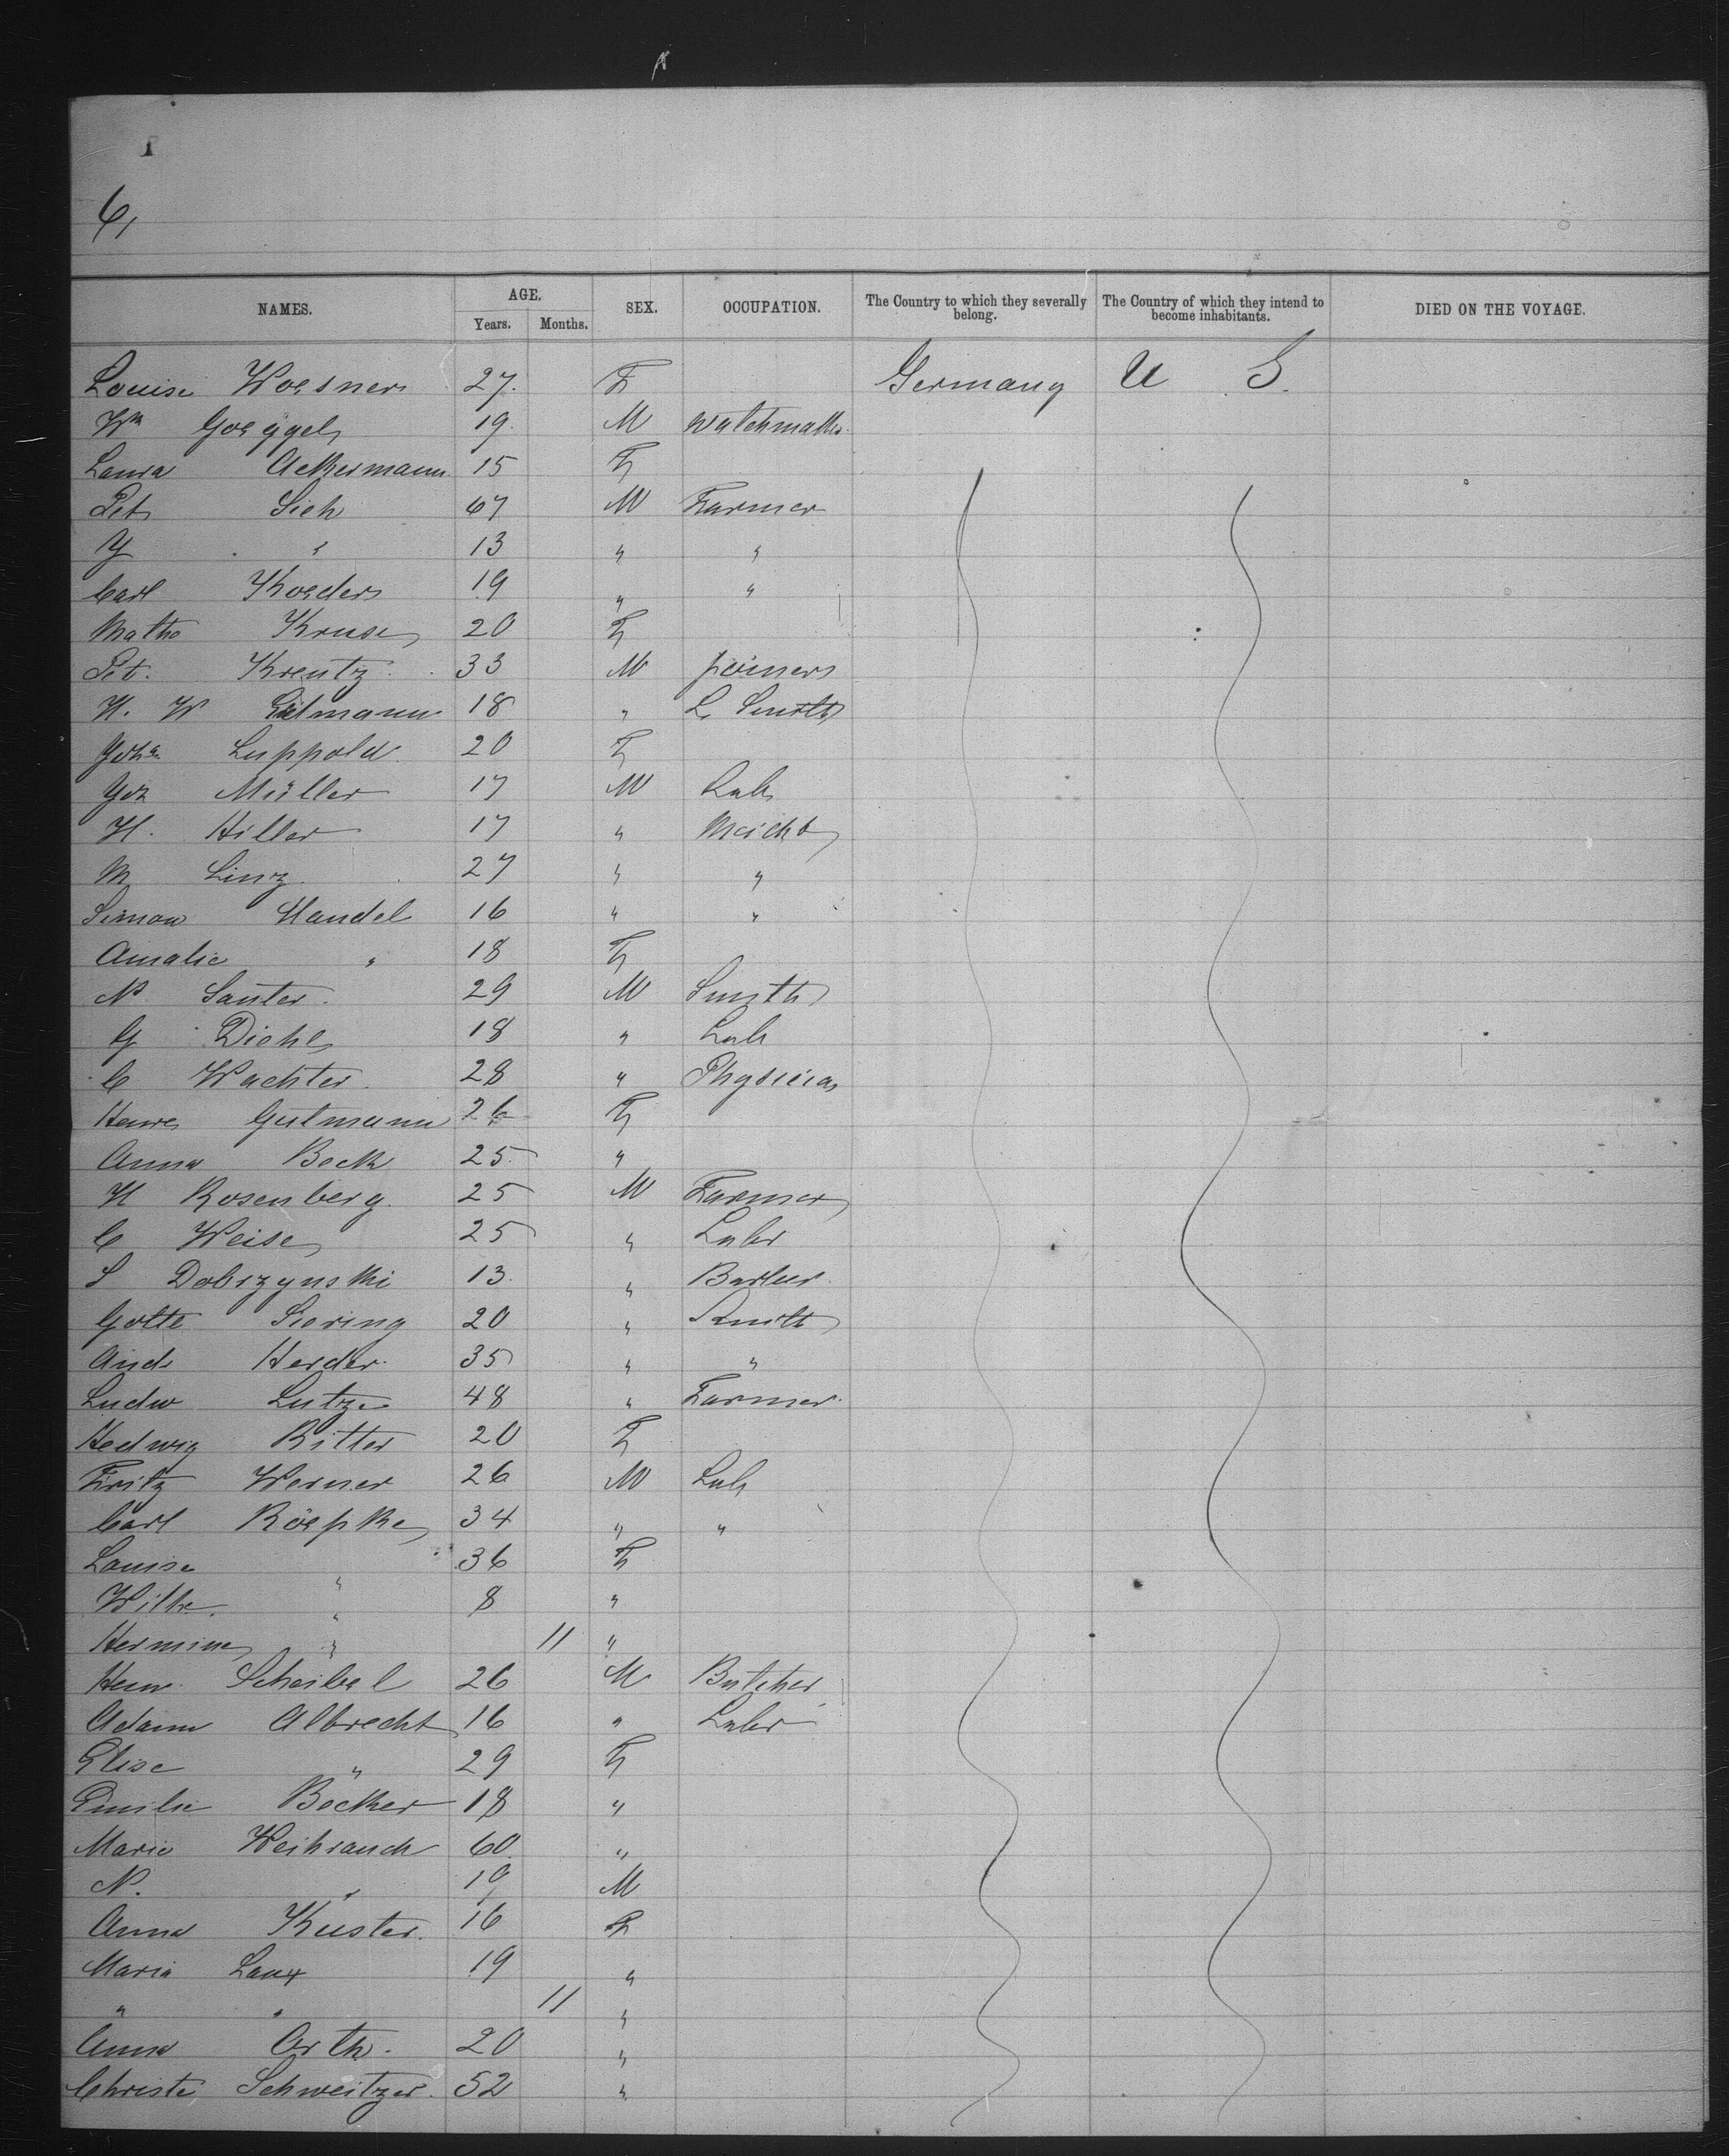 6,
NAMES. AGE. Years. Months. SEX. OCCUPATION. The Country to which they severally belong. The Country of which they intend to become inhabitants. DIED ON THE VOYAGE.
Louise Woesner 27. F Germany U S.
Wm Goeggel 19. M Watchmaker
Laura Ackermann 15 F
Pet Sieh 47 M Farmer
Y " 13 " "
Carl Koeder 19 " "
Matho Kruse 20 F
Pet. Kreutz 33 M joiner
H. W 18 " L. Smith
Luppold. 20 F
Müller 17 M Lab
H. Hiller 17 "
M Linz 27 " "
Simon Handel 16 " "
Amalie " 18 F
N Sauter. 29 M Smith
G Diehl 18 " Lab
C Wachter 28 " Physician
Gutmann 26 F
Anna Beck 25 "
H Rosenberg. 25 M Farmer
C Weise 25 " Labr
S Dobrzynski 13. " Barber.
Gotte Siering 20 " Smith
And. Herder. 35 " "
Ludw Lutze 48 " Farmer.
Hedwig Ritter 20 F
Fritz Werner 26 M Lab
Carl Röepke 34 " "
Louise " 36 F
Wilhe. " 8 "
Hermine " 11 "
Heinr Scheibel 26 M Butcher
Adam Albrecht 16 " Labr
Elise " 29 F
Emilie Böcker 18 "
Marie Weihrauch 60. "
N. " 19 M
Anna Kuster. 16 F
Maria Laux 19 "
" " 11 "
Anna Orth. 20 "
Christe Schweitzer. 52 "